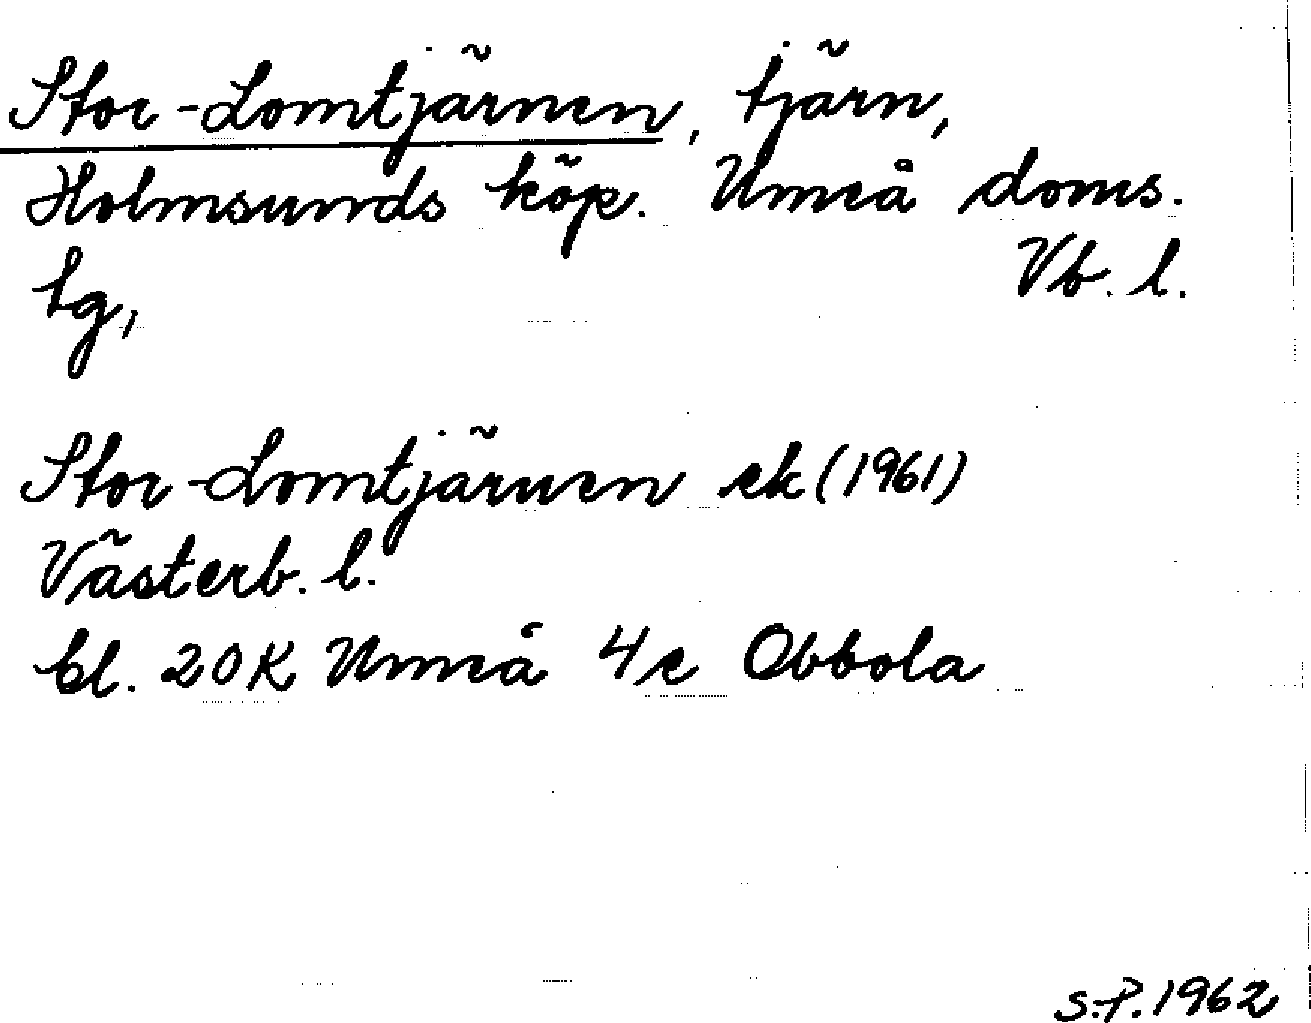 Stor-Lomtjärnen, tjärn,
Holmsunds köp. Umeå doms.
tg, Vb. l.
Stor-Lomtjärnen ek (1961)
Västerb. l.
bl. 20K Umeå 4c Obbola
S.P. 1962